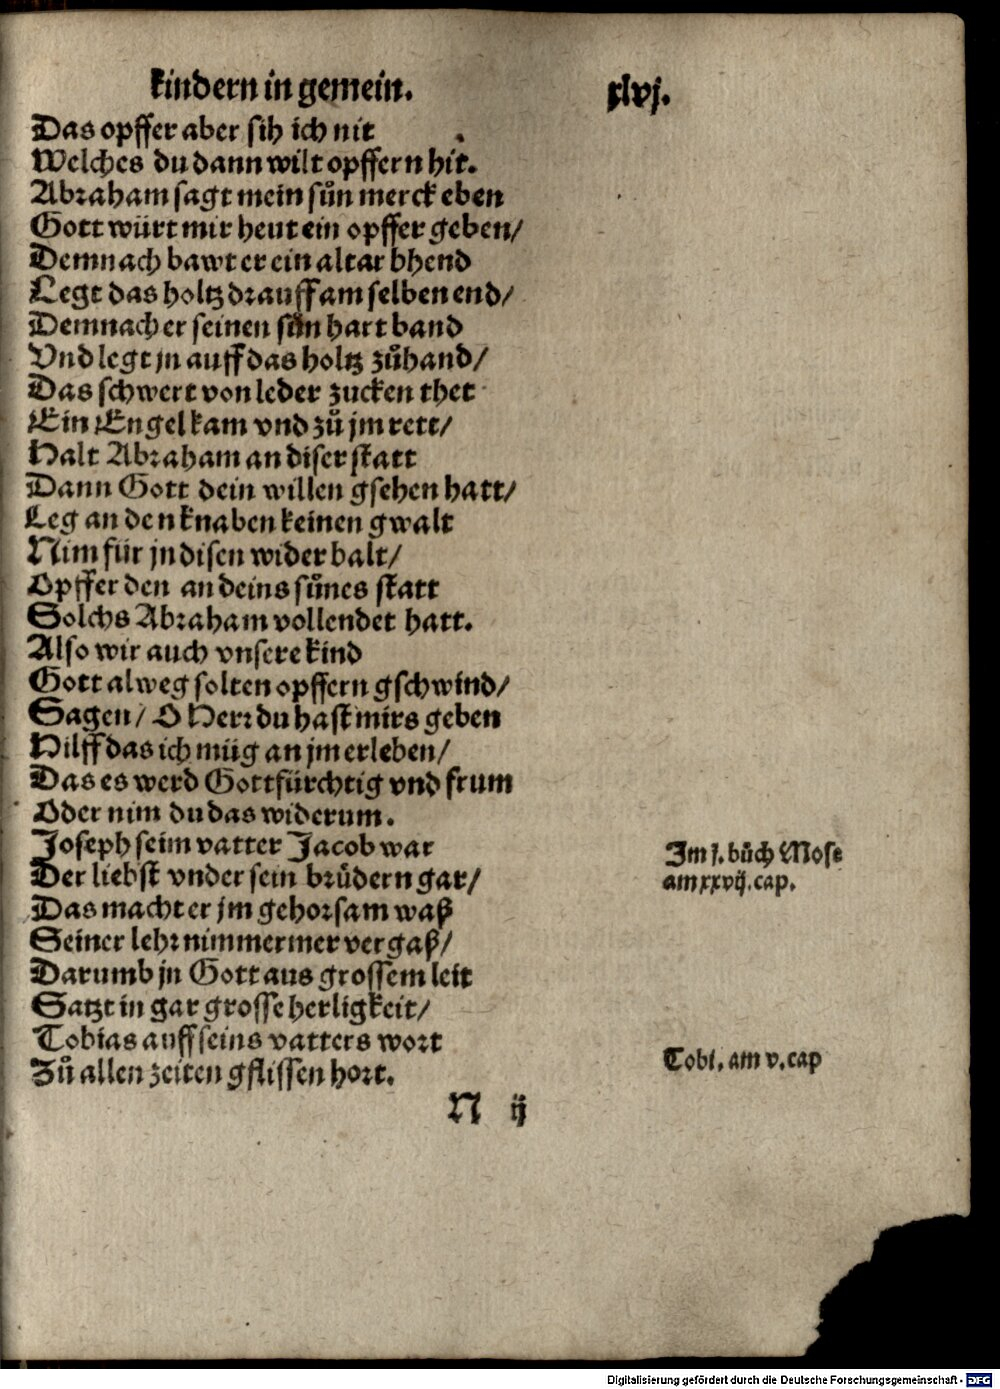 kindern in gemein. xlvj.
Das opffer aber sih ich nit
Welches du dann wilt opffern hit.
Abraham sagt mein sůn merck eben
Gott würt mir heut ein opffer geben/
Demnach bawt er ein altar bhend
Legt das holtz drauff am selben end/
Demnach er seinen sůn hart band
Vnd legt jn auff das holtz zůhand/
Das schwert von leder zucken thet
Ein Engel kam vnd zů jm rett/
Halt Abraham an diser statt
Dann Gott dein willen gsehen hatt/
Leg an den knaben keinen gwalt
Nim für jn disen wider balt/
Opffer den an deins sůnes statt
Solchs Abraham vollendet hatt.
Also wir auch vnsere kind
Gott alweg solten opffern gschwind/
Sagen/ O Herr du hast mirs geben
Hilff das ich müg an jm erleben/
Das es werd Gottfürchtig vnd frum
Oder nim du das widerum.
Joseph seim vatter Jacob war
Der liebst vnder sein brůdern gar/
Das macht er jm gehorsam waß
Seiner lehr nimmermer vergaß/
Darumb jn Gott aus grossem leit
Satzt in gar grosse herligkeit/
Tobias auff seins vatters wort
Zů allen zeiten gflissen hort.
Im j. bůch Mose
am xxvij. cap.
Tobi. am v. cap
N ij
Digitalisierung gefördert durch die Deutsche Forschungsgemeinschaft - DFG